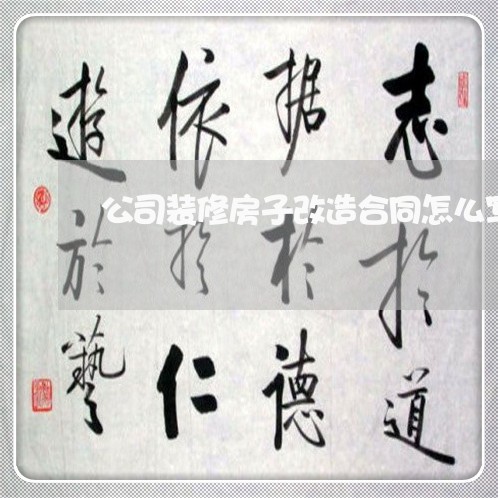 志於道
据於德
依於仁
遊於藝
公司装修房子改造合同怎么